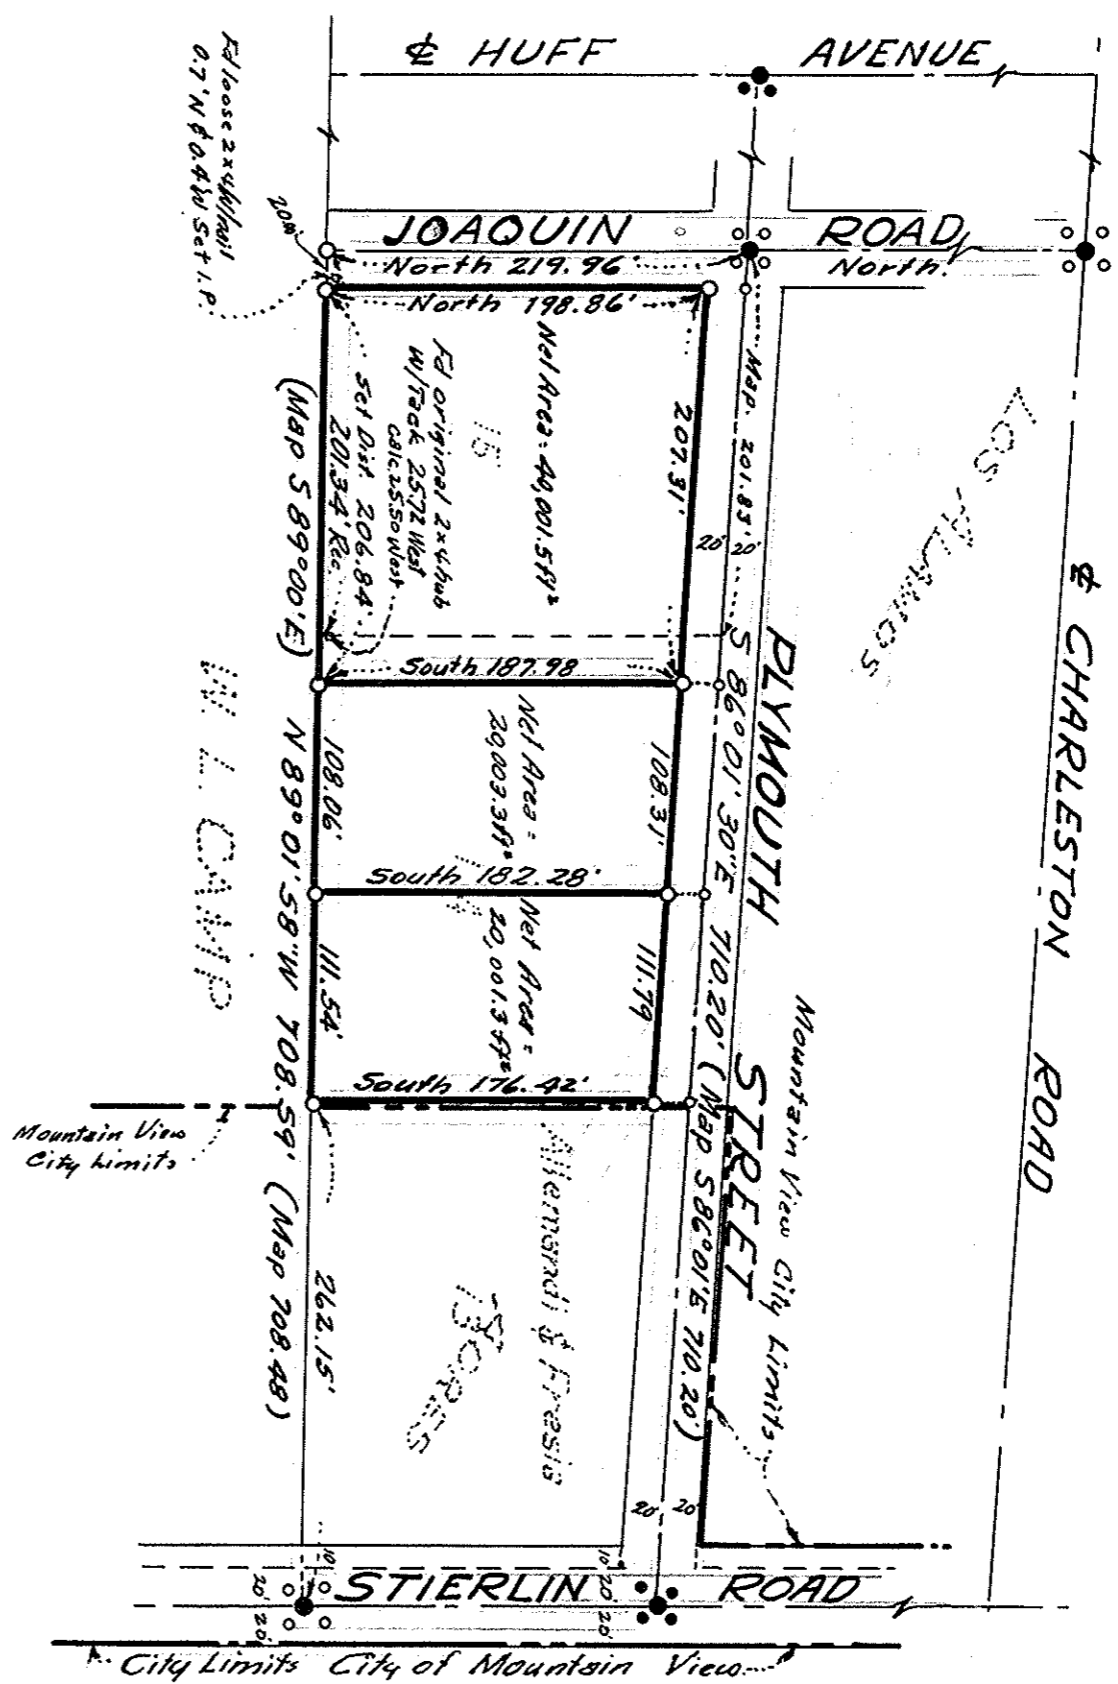 ℄ HUFF AVENUE
Fd loose 2x4 W/nail
0.7' N & 0.4' W Set I.P.
20.00'
JOAQUIN ROAD
North 219.96'
North.
North 198.86'
Net Area = 40,001.5 ft²
15
Fd original 2x4 hub
W/Tack 25.72 West
Calc 25.50 West
Set Dist. 206.84'
201.34' Rec.
207.31'
Map. 201.83'
20' 20'
(Map S 89°00'E)
LOS ALAMOS
℄ CHARLESTON ROAD
PLYMOUTH STREET
S 86°01'30"E 710.20' (Map S 86°01'E 710.20')
South 187.98
Net Area =
20,003.3 ft²
108.06'
108.31'
South 182.28'
Net Area =
20,001.3 ft²
111.54'
111.79
South 176.42'
W. L. CAMP
N 89°01'58"W 708.59' (Map 708.48)
Mountain View
City Limits
Mountain View City Limits
& Fresia
13
262.15'
20' 20'
10'
20' 20'
10'
20' 20'
STIERLIN ROAD
City Limits City of Mountain View